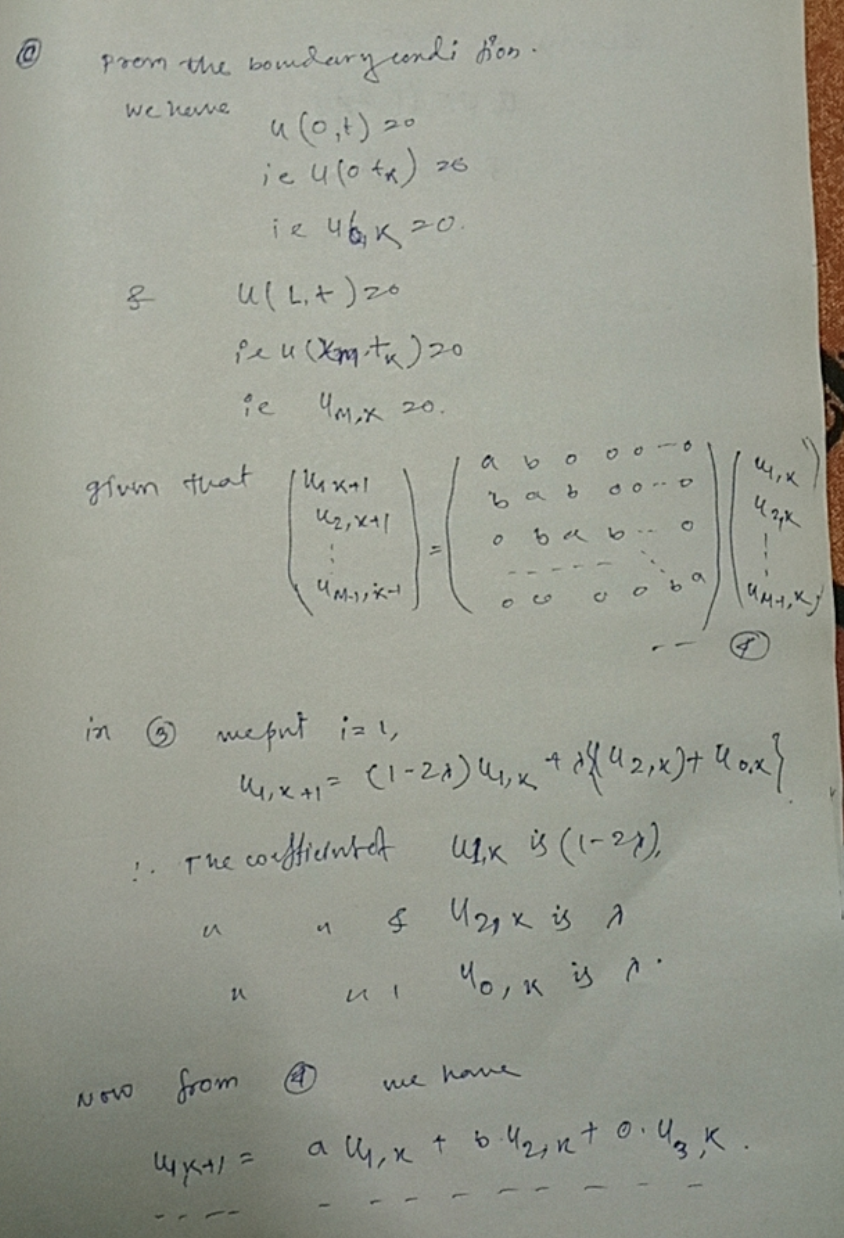 @ From the boundary condition.
we have
u(0,t) = 0
ie u(0 t_K) = 0
ie u_{0,K} = 0.
& u(L,t) = 0
ie u(x_M, t_K) = 0
ie u_{M,K} = 0.
given that (u_{1,K+1} u_{2,K+1} ⋮ u_{M-1,K+1}) = (a b 0 0 0 -- 0
b a b 0 0 -- 0
0 b a b -- 0
- - - - - -
0 0 0 0 b a) (u_{1,K} u_{2,K} ⋮ u_{M-1,K})
-- ④
in ③ we put i = 1,
u_{1,K+1} = (1-2λ) u_{1,K} + λ{(u_{2,K}) + u_{0,K}}
∴ The coefficient of u_{1,K} is (1-2λ),
" " & u_{2,K} is λ
" " u_{0,K} is λ.
Now from ④ we have
u_{1,K+1} = a u_{1,K} + b·u_{2,K} + 0·u_{3,K}.
---- - - - - - - - -